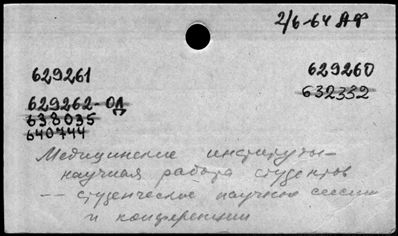 2/6-64 АФ
629261 629260
629262-ОД 632332
638035
640744
Медицинские институты-
научная работа студентов
-- студенческие научные сессии
и конференции